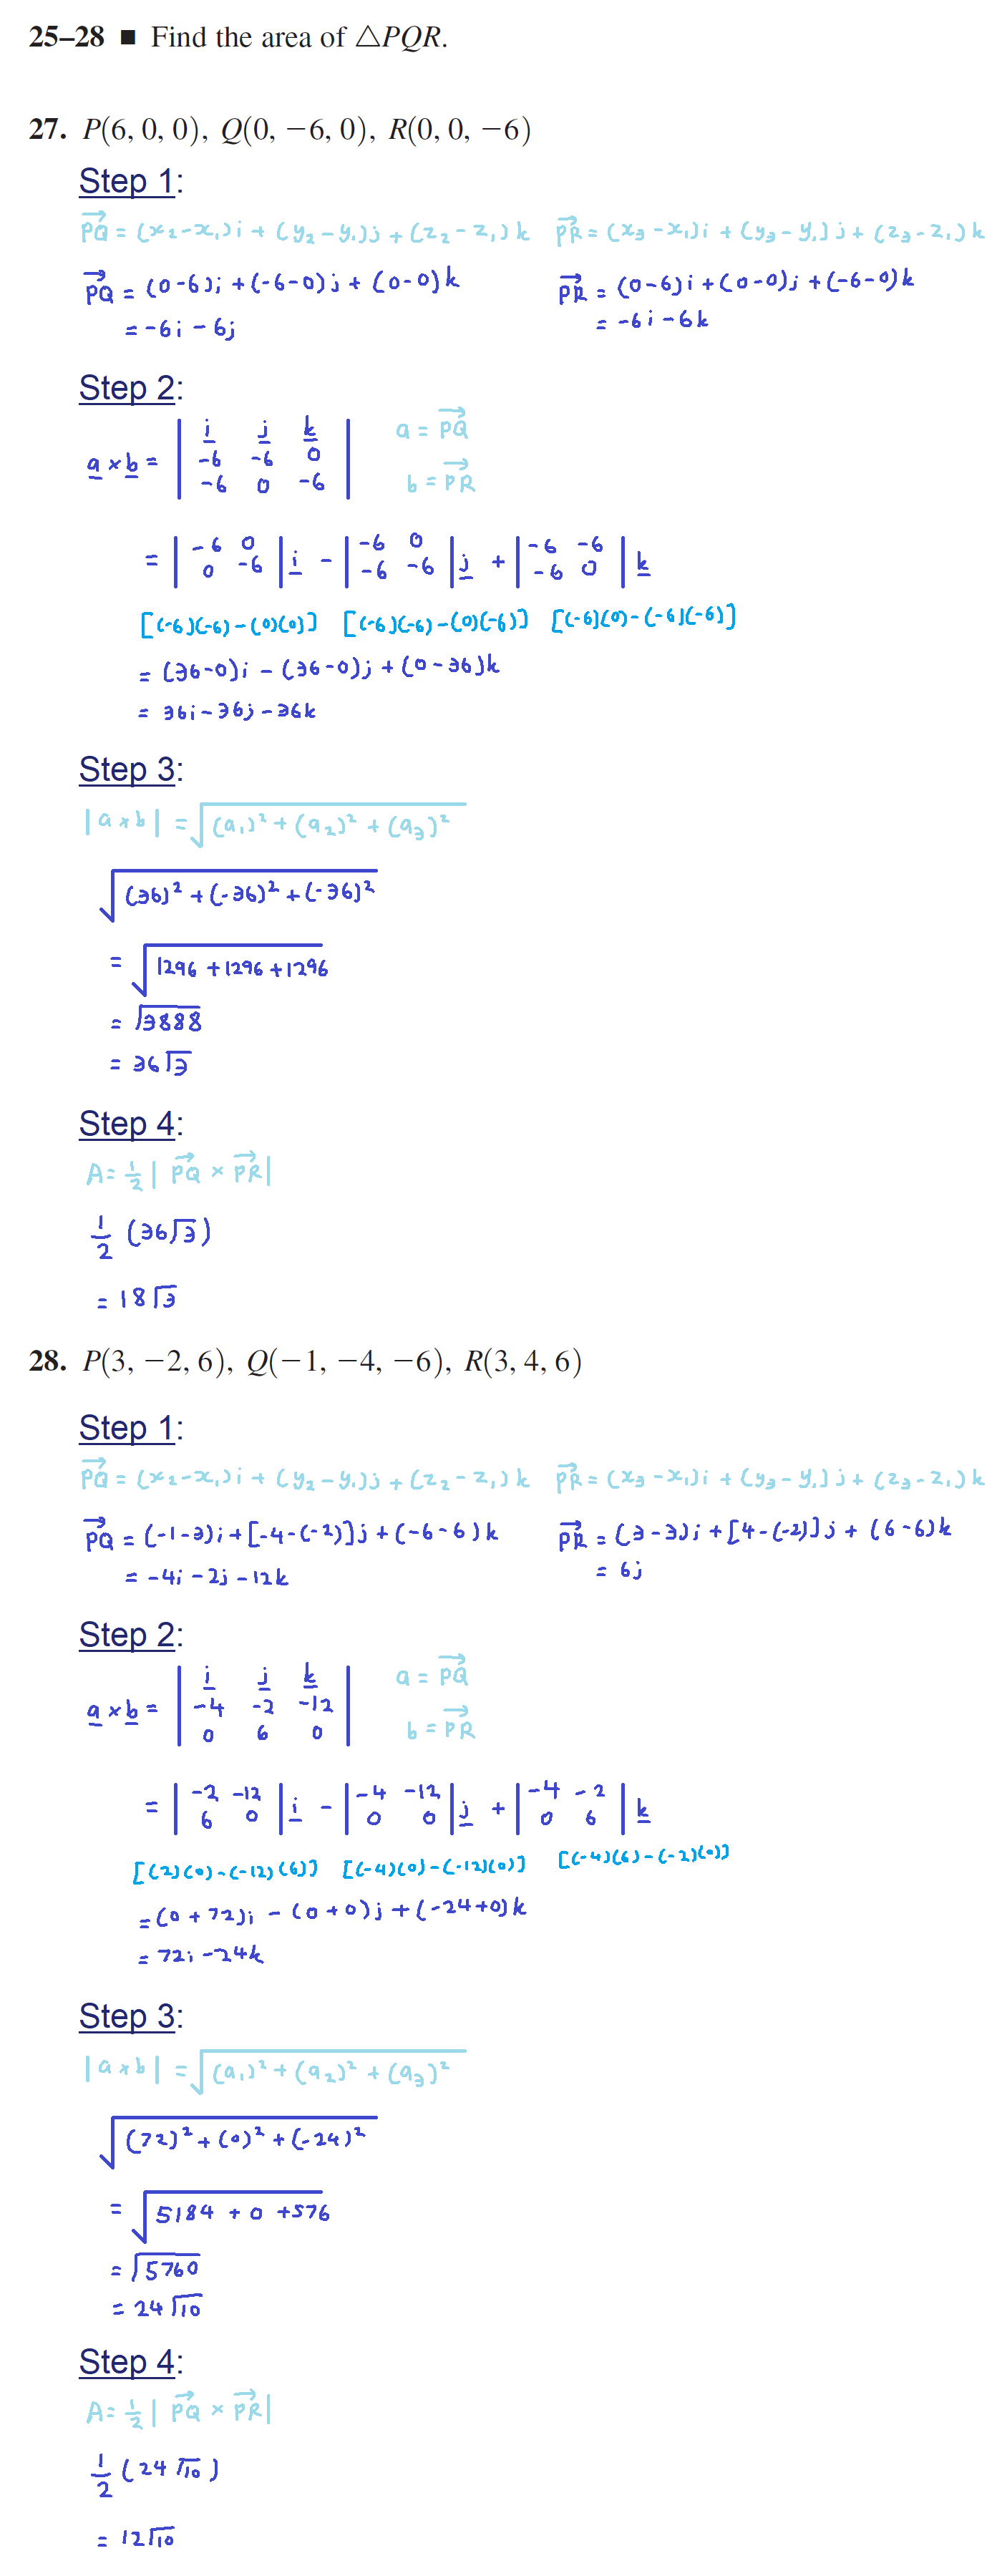 25–28 ■ Find the area of △PQR.
27. P(6, 0, 0), Q(0, −6, 0), R(0, 0, −6)
Step 1:
PQ→ = (x₂-x₁)i + (y₂-y₁)j + (z₂-z₁)k PR→ = (x₃-x₁)i + (y₃-y₁)j + (z₃-z₁)k
PQ→ = (0-6)i + (-6-0)j + (0-0)k PR→ = (0-6)i + (0-0)j + (-6-0)k
= -6i - 6j = -6i - 6k
Step 2:
i j k a = PQ→
a × b = | -6 -6 0 |
-6 0 -6 b = PR→
= | -6 0 | i - | -6 0 | j + | -6 -6 | k
0 -6 -6 -6 -6 0
[(-6)(-6)-(0)(0)] [(-6)(-6)-(0)(-6)] [(-6)(0)-(-6)(-6)]
= (36-0)i - (36-0)j + (0-36)k
= 36i - 36j - 36k
Step 3:
|a × b| = √(a₁)² + (a₂)² + (a₃)²
√(36)² + (-36)² + (-36)²
= √1296 + 1296 + 1296
= √3888
= 36√3
Step 4:
A = 1/2 | PQ→ × PR→ |
1/2 (36√3)
= 18√3
28. P(3, −2, 6), Q(−1, −4, −6), R(3, 4, 6)
Step 1:
PQ→ = (x₂-x₁)i + (y₂-y₁)j + (z₂-z₁)k PR→ = (x₃-x₁)i + (y₃-y₁)j + (z₃-z₁)k
PQ→ = (-1-3)i + [-4-(-2)]j + (-6-6)k PR→ = (3-3)i + [4-(-2)]j + (6-6)k
= -4i - 2j - 12k = 6j
Step 2:
i j k a = PQ→
a × b = | -4 -2 -12 |
0 6 0 b = PR→
= | -2 -12 | i - | -4 -12 | j + | -4 -2 | k
6 0 0 0 0 6
[(2)(0)-(-12)(6)] [(-4)(0)-(-12)(0)] [(-4)(6)-(-2)(0)]
= (0+72)i - (0+0)j + (-24+0)k
= 72i - 24k
Step 3:
|a × b| = √(a₁)² + (a₂)² + (a₃)²
√(72)² + (0)² + (-24)²
= √5184 + 0 + 576
= √5760
= 24√10
Step 4:
A = 1/2 | PQ→ × PR→ |
1/2 (24√10)
= 12√10